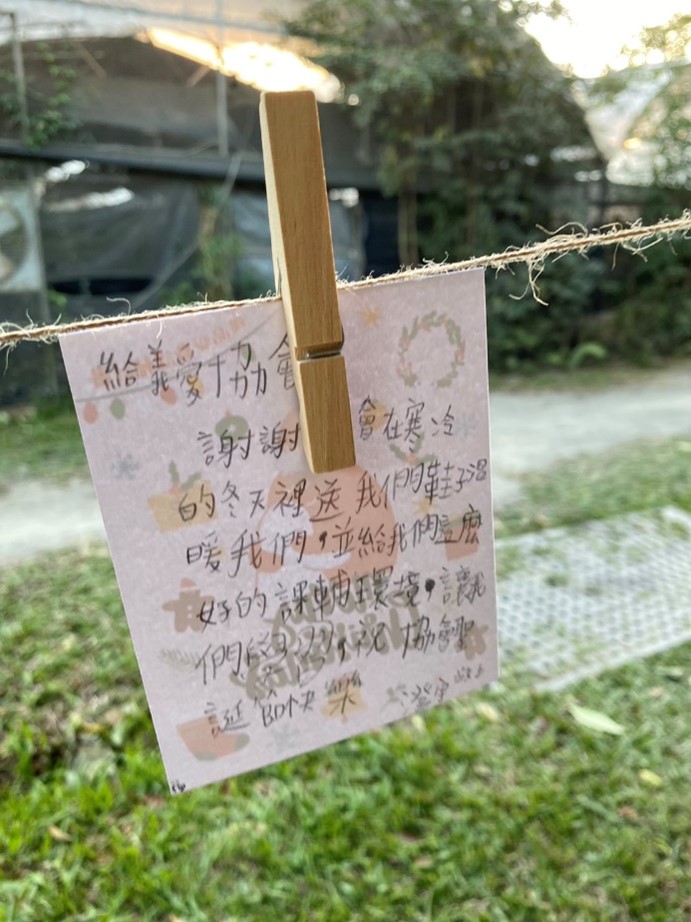 給義愛協會
謝謝 會在寒冷
的冬天裡送我們鞋子溫
暖我們，並給我們這麼
好的課輔環境，讓我
們學習，祝協會聖
誕節快樂
敬上